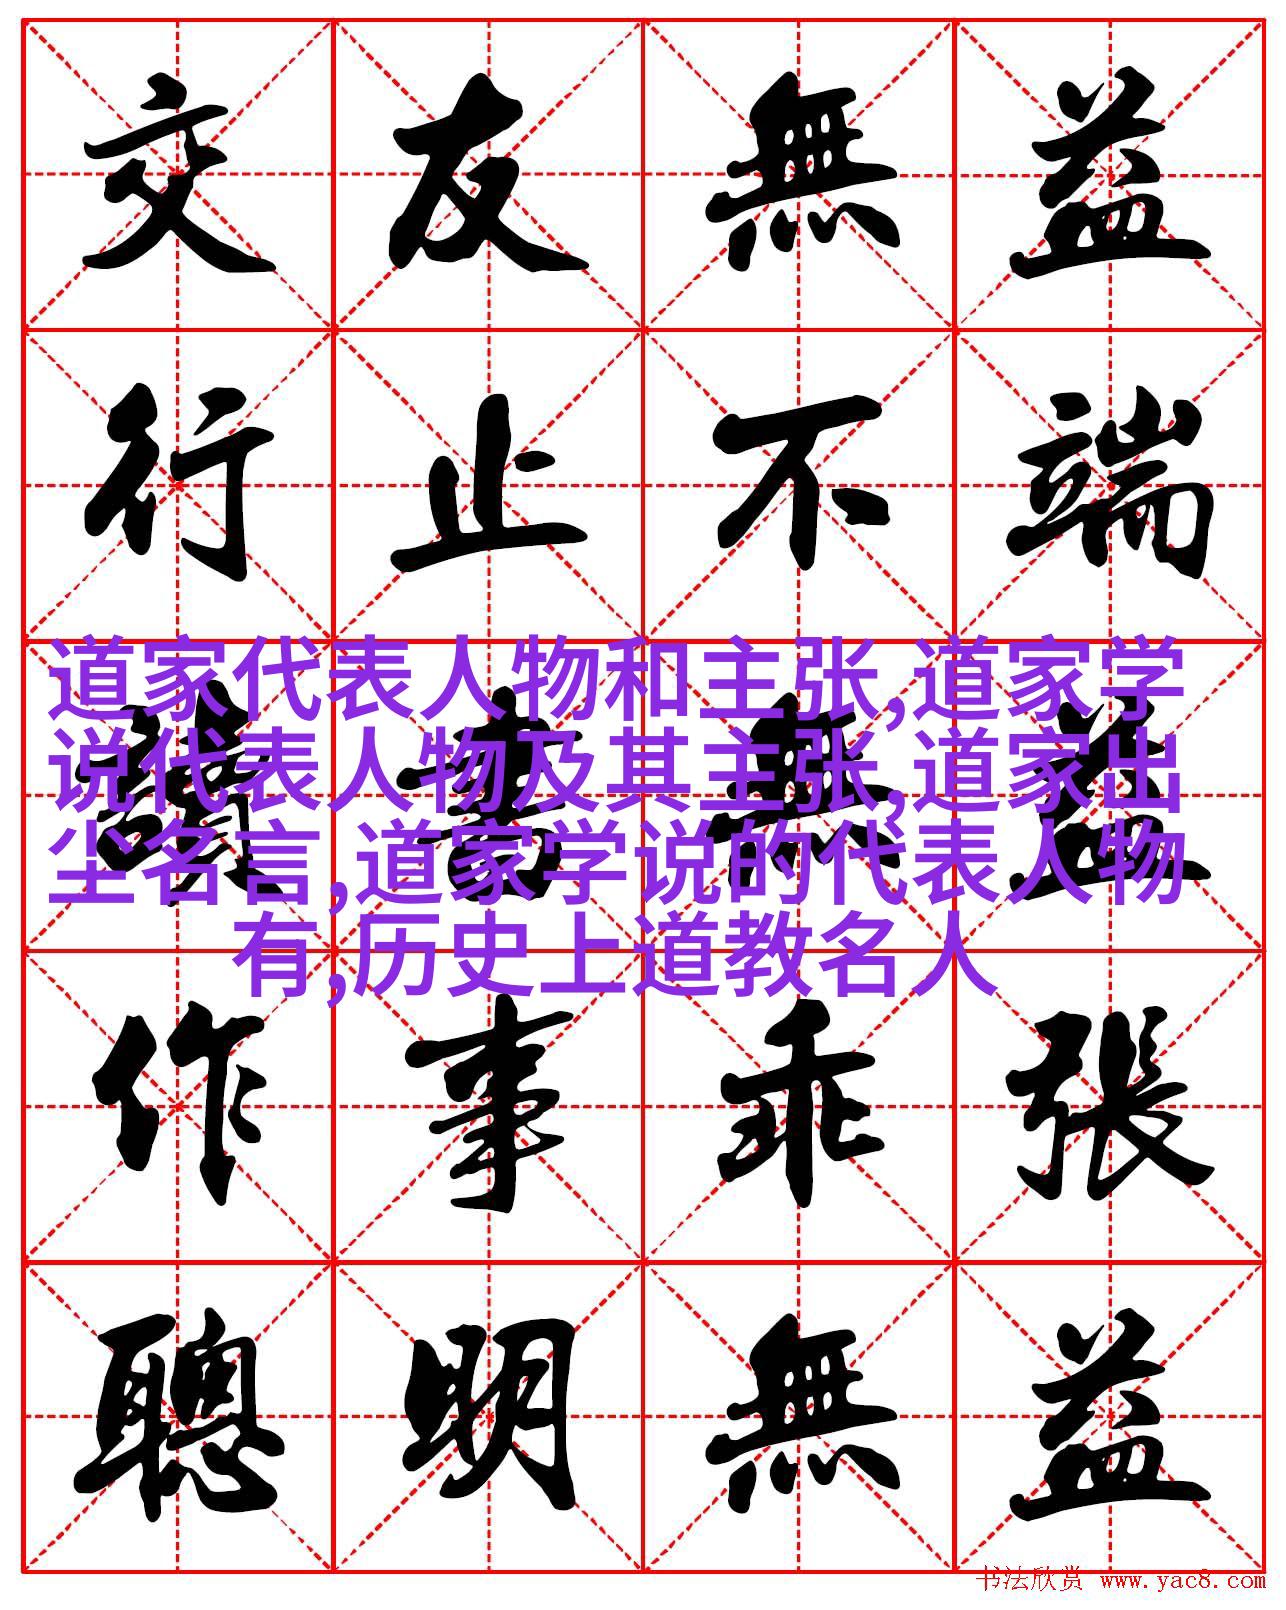 交友無益
行止不端
道家代表人物和主张,道家学
说代表人物及其主张,道家出
尘名言,道家学说的代表人物
有,历史上道教名人
讀書無益
作事乖張
聰明無益
书法欣赏 www.yac8.com